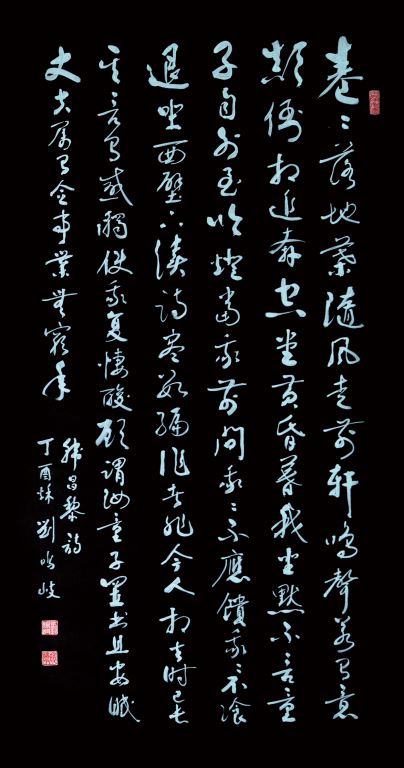 卷〻落地葉隨風走前軒鳴聲若有意
顛倒相追奔空堂黃昏暮我坐默不言童
子自外至吹燈當我前問我〻不應饋我〻不飡
退坐西壁下讀詩盡數編作者非今人相去時已千
其言有感觸使我復悽酸顧謂汝童子置書且安眠
丈夫屬有念事業無窮年
韓昌黎詩
丁酉秌劉